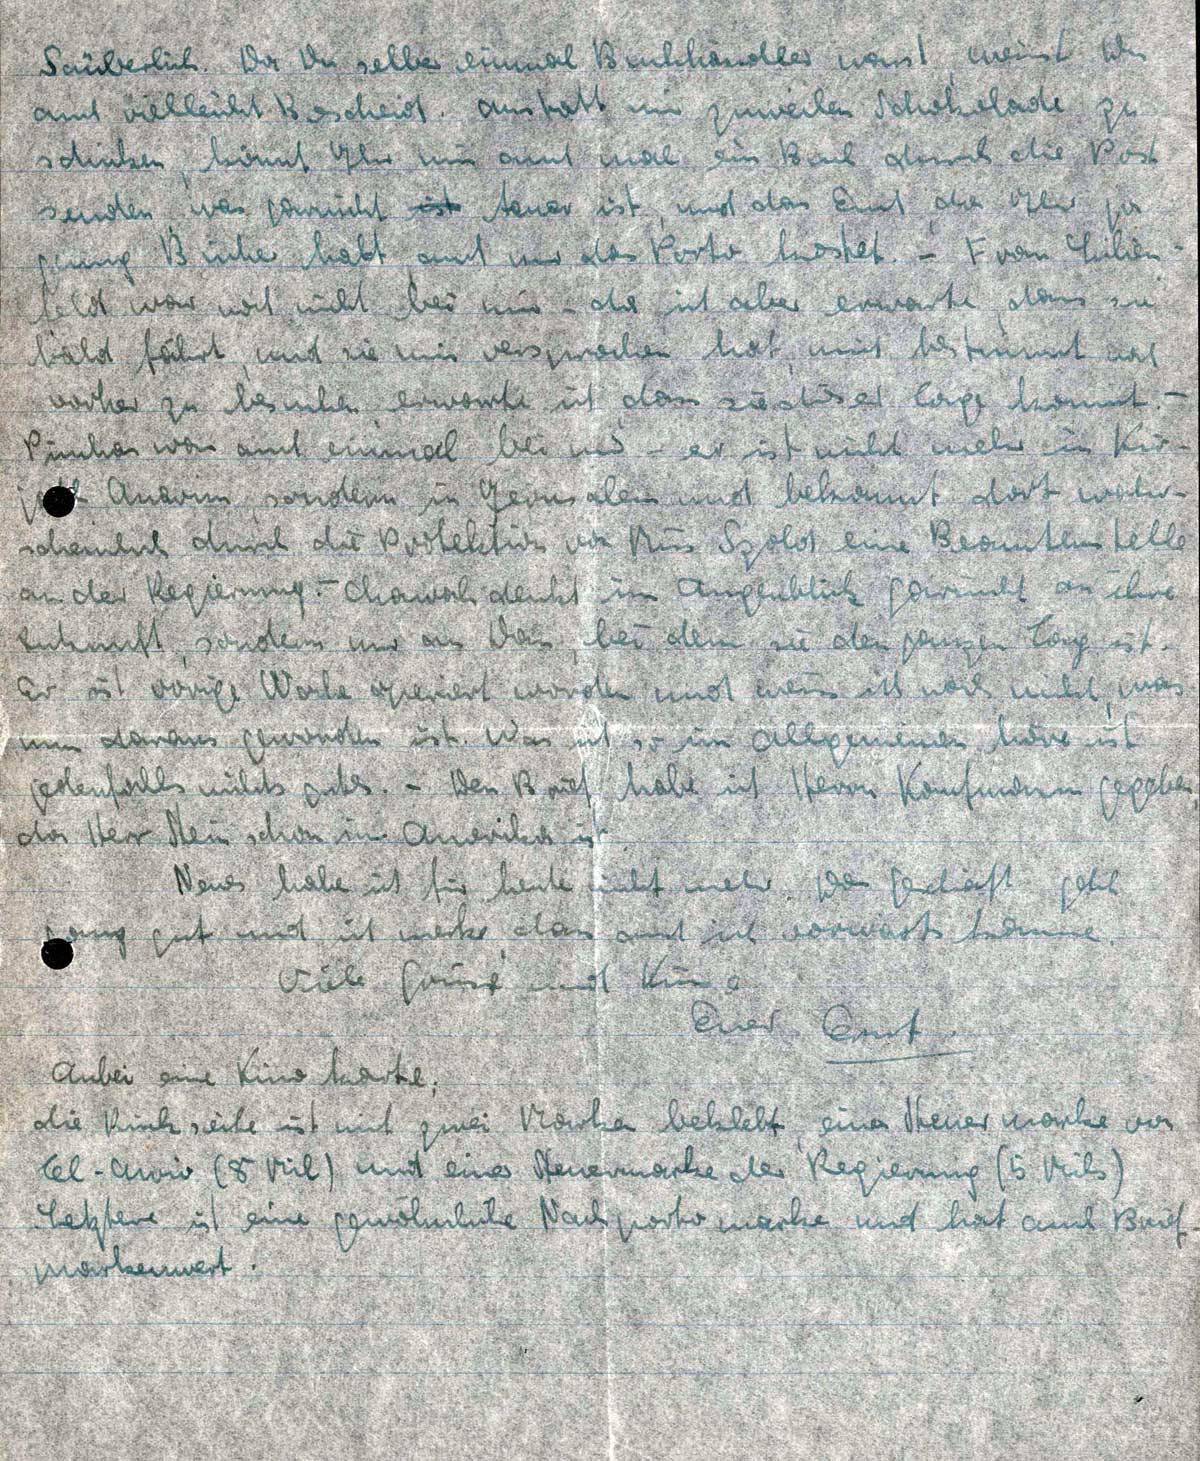 Säuberlich. Da Du selber einmal Buchhändler warst, weisst Du
auch vielleicht Bescheid. Anstatt mir zuweilen Schokolade zu
schicken, könnt Ihr mir auch mal ein Buch durch die Post
senden, was garnicht ist teuer ist, und das Euch, da Ihr ja
genug Bücher habt auch nur das Porto kostet. – Frau Lilien-
feld war noch nicht bei mir – da ich aber erwarte, dass sie
bald fährt, und sie mir versprochen hat, mich bestimmt noch
vorher zu besuchen, erwarte ich, dass sie dieser Tage kommt. –
Pinchas war auch einmal bei mir – er ist nicht mehr in Kir-
jath Anavim, sondern in Jerusalem und bekommt dort wahr-
scheinlich durch die Protektion von Miss Szold eine Beamtenstelle
an der Regierung. – Chawah denkt im Augenblick garnicht an ihre
Zukunft, sondern nur an Dan, bei dem sie den ganzen Tag ist.
Er ist vorige Woche operiert worden und weiss ich noch nicht, was
nun daraus geworden ist. Was ich so im Allgemeinen höre ist
jedenfalls nichts gutes. – Den Brief habe ich Herrn Kaufmann gegeben
da Herr schon in Amerika ist
Neues habe ich für heute nicht mehr. Das Geschäft geht
ganz gut und ich merke, dass auch ich vorwärts komme.
Viele Grüsse und Küsse
Euer Ernst.
Anbei eine Kinokarte,
die Rückseite ist mit zwei Marken beklebt, einer Steuermarke von
Tel-Awiw (8 Mil) und einer Steuermarke der Regierung (5 Mils)
Letztere ist eine gewöhnliche Nachportomarke und hat auch Brief-
markenwert.